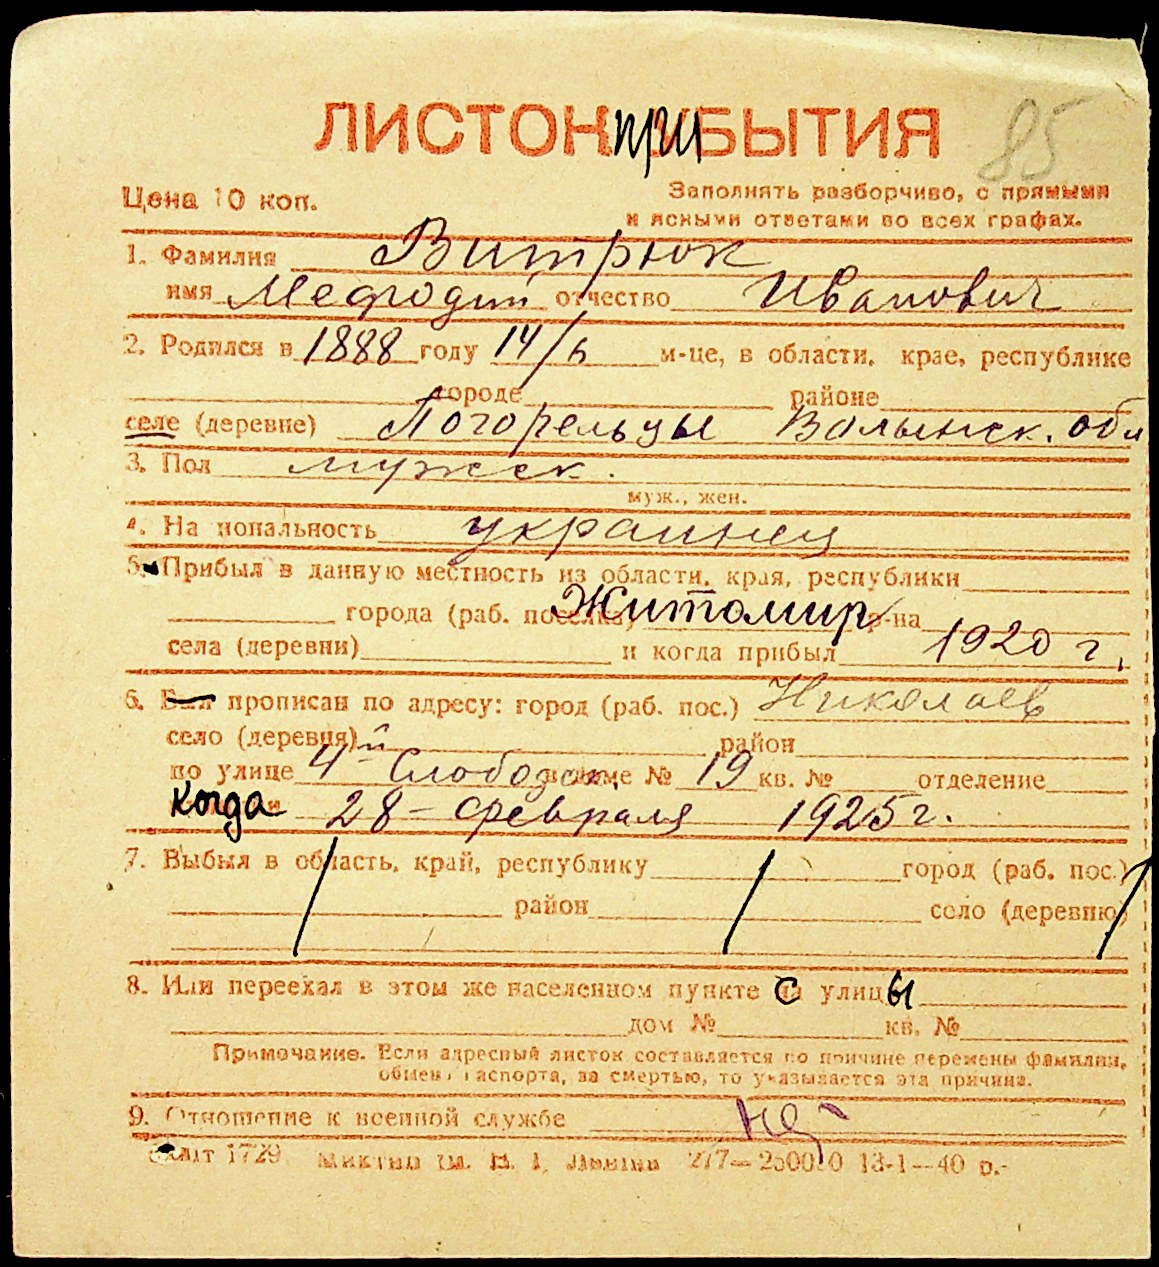 ЛИСТОК ПРИБЫТИЯ
85
Цена 10 коп.
Заполнять разборчиво, с прямыми
и ясными ответами во всех графах.
1. Фамилия Витрюк
имя Мефодий отчество Иванович
2. Родился в 1888 году 14/6 м-це, в области, крае, республике
городе районе
селе (деревне) Погорельцы Волынск. обл
3. Пол мужск.
муж., жен.
4. Национальность украинец
5. Прибыл в данную местность из области, края, республики
города (раб. поселка) Житомир р-на
села (деревни) и когда прибыл 1920 г.
6. прописан по адресу: город (раб. пос.) Николаев
село (деревня) район
по улице 4-й Слободск. доме № 19 кв. № отделение
когда 28 – февраля 1925 г.
7. Выбыл в область, край, республику город (раб. пос.)
район село (деревню)
8. Или переехал в этом же населенном пункте с улицы
дом № кв. №
Примечание. Если адресный листок составляется по причине перемены фамилии,
обмена паспорта, за смертью, то указывается эта причина.
9. Отношение к военной службе
1729 им. В. И. Ленина 277—250000 13-1—40 р.